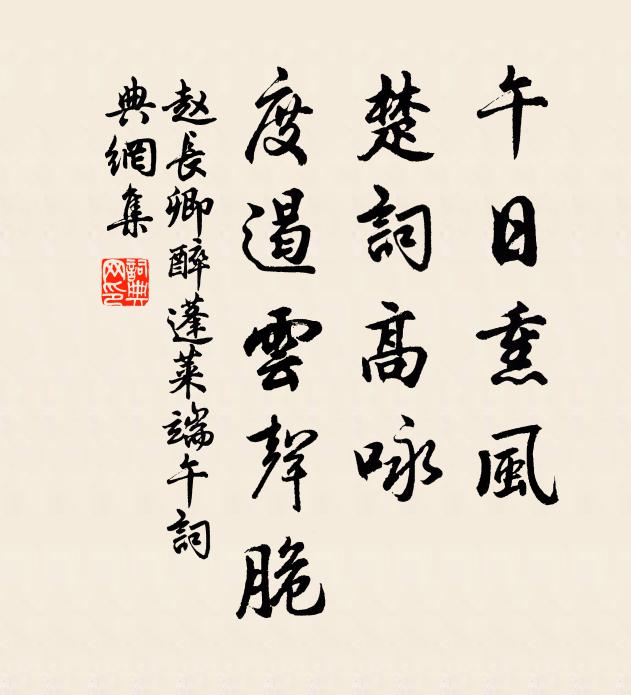 午日熏風
楚詞高咏
度遏雲聲脆
赵長卿醉蓬萊端午詞
典網集
詞典
网印